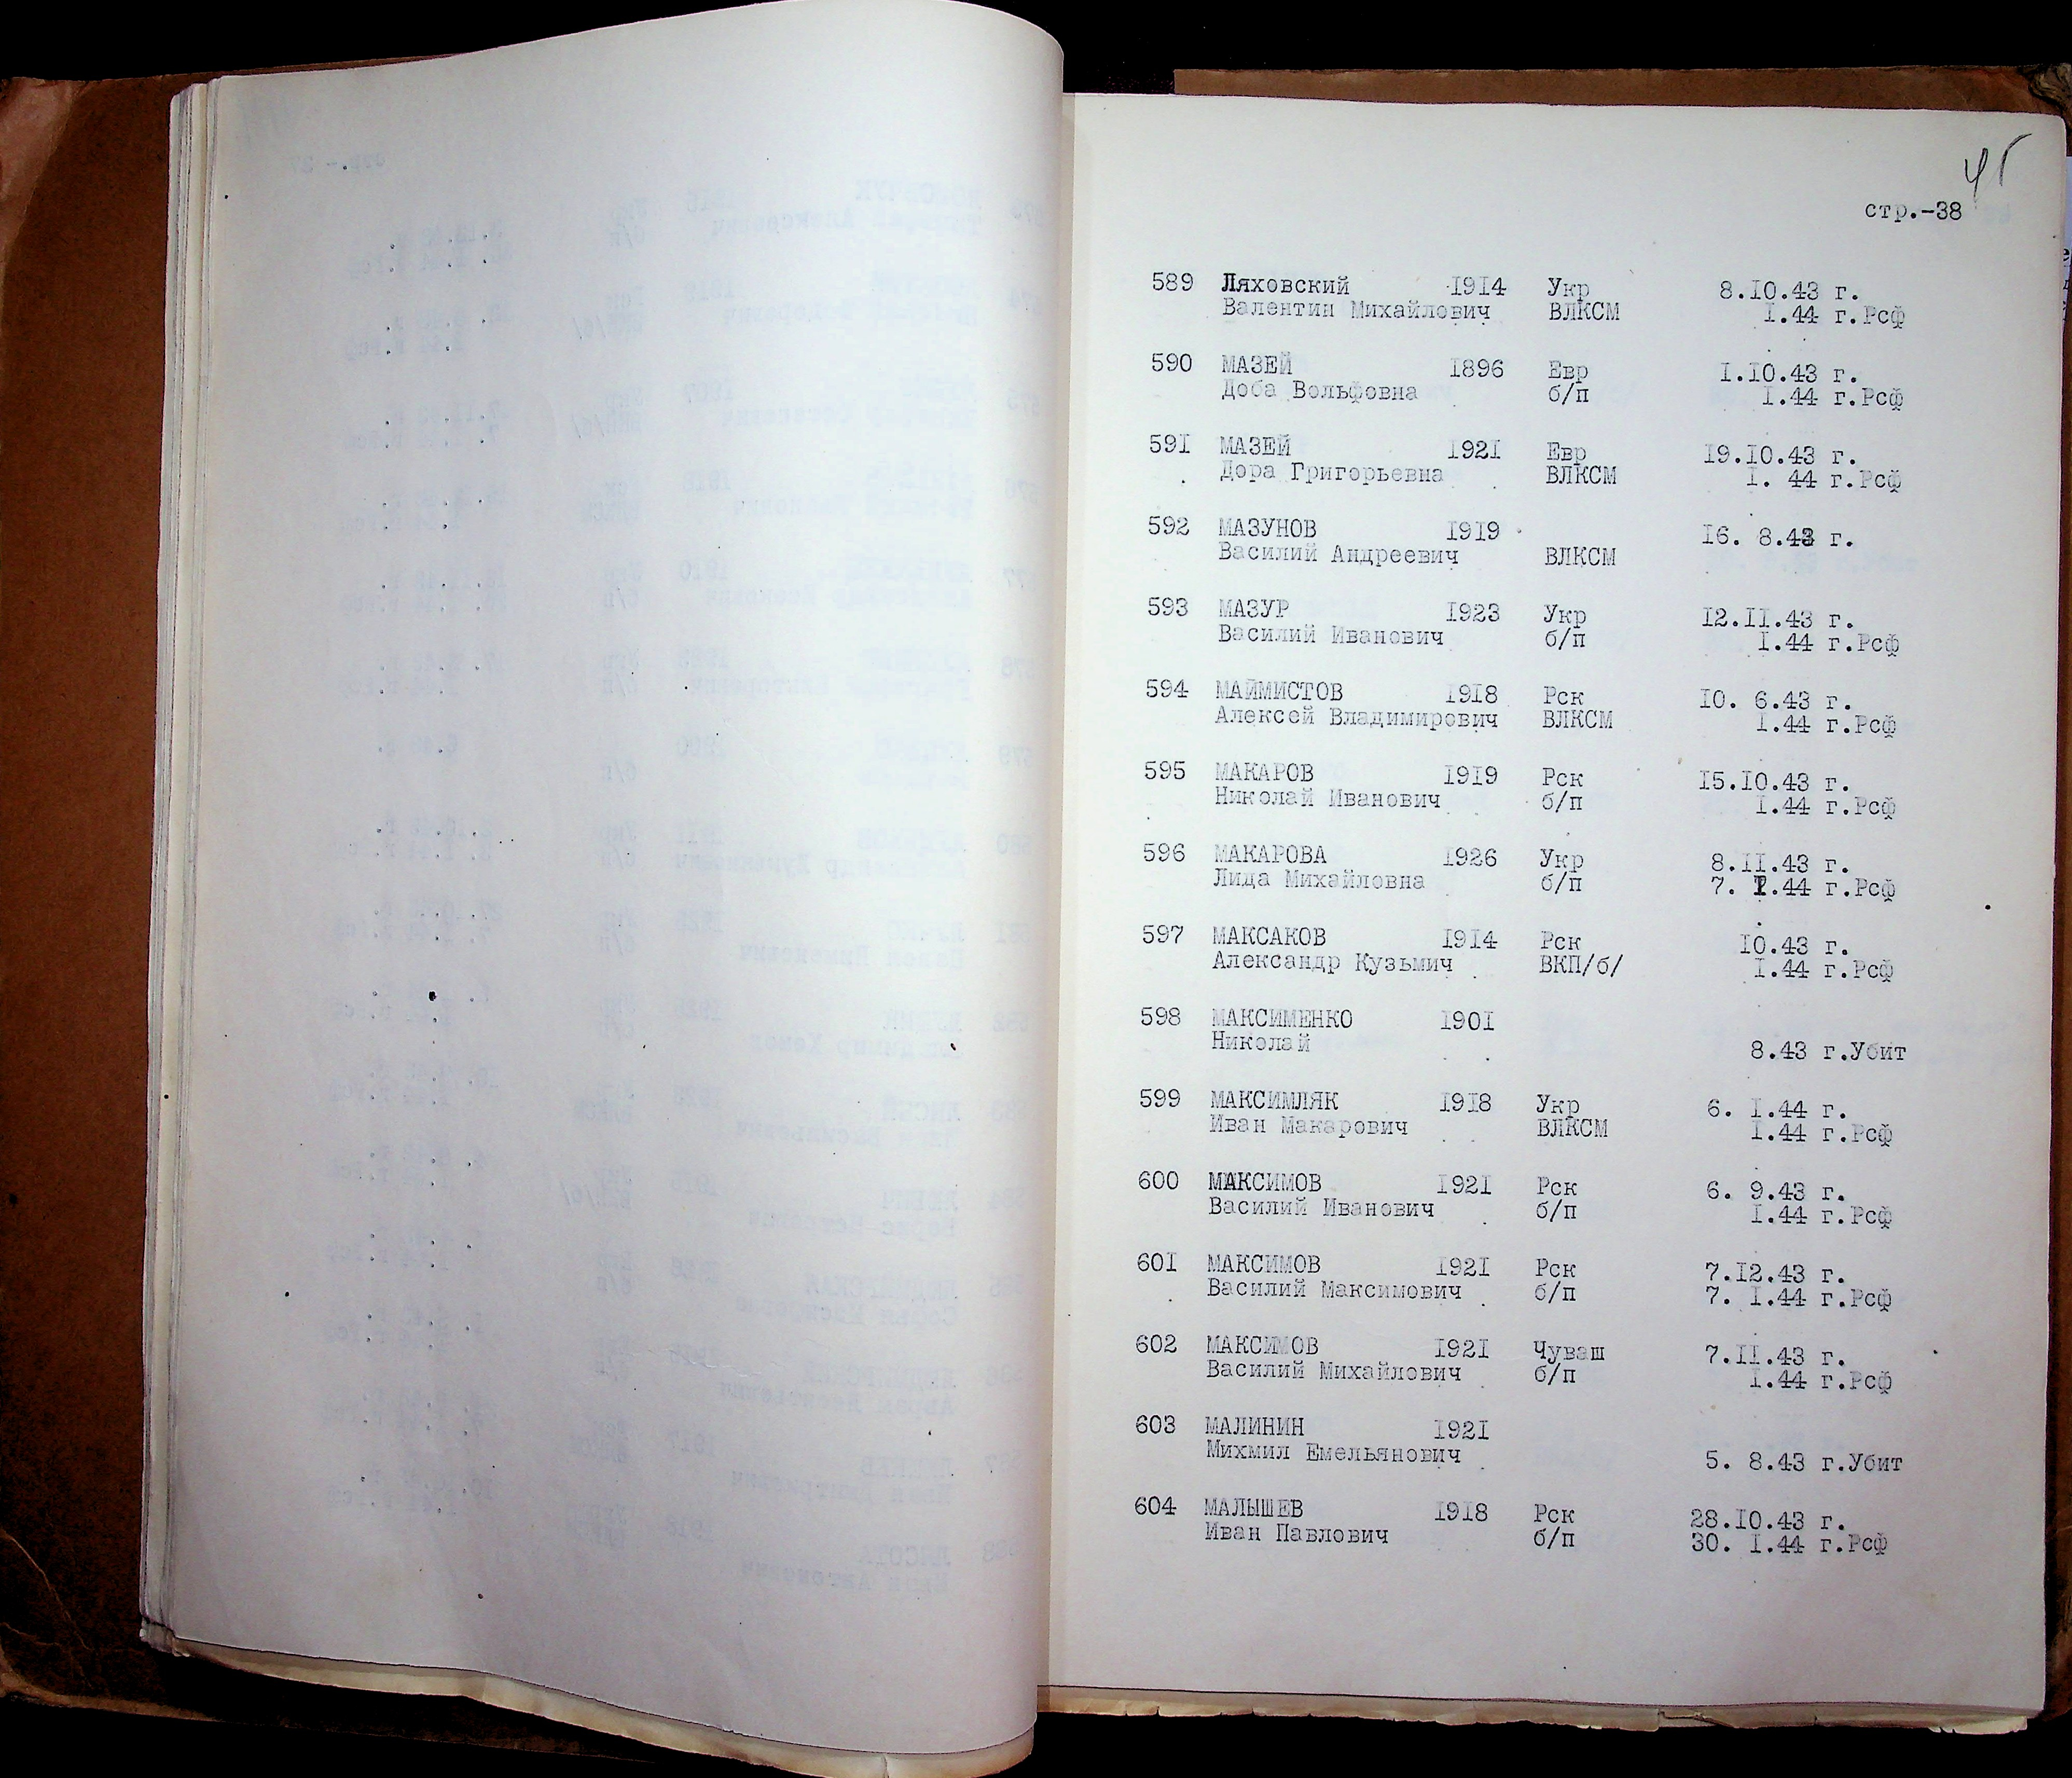 45
стр.-38
589 Ляховский 1914 Укр 8.10.43 г.
Валентин Михайлович ВЛКСМ 1.44 г.Рсф
590 МАЗЕЙ 1896 Евр 1.10.43 г.
Доба Вольфовна б/п 1.44 г.Рсф
591 МАЗЕЙ 1921 Евр 19.10.43 г.
Дора Григорьевна ВЛКСМ 1. 44 г.Рсф
592 МАЗУНОВ 1919 16. 8.43 г.
Василий Андреевич ВЛКСМ
593 МАЗУР 1923 Укр 12.11.43 г.
Василий Иванович б/п 1.44 г.Рсф
594 МАЙМИСТОВ 1918 Рск 10. 6.43 г.
Алексей Владимирович ВЛКСМ 1.44 г.Рсф
595 МАКАРОВ 1919 Рск 15.10.43 г.
Николай Иванович б/п 1.44 г.Рсф
596 МАКАРОВА 1926 Укр 8.11.43 г.
Лида Михайловна б/п 7. 1.44 г.Рсф
597 МАКСАКОВ 1914 Рск 10.43 г.
Александр Кузьмич ВКП/б/ 1.44 г.Рсф
598 МАКСИМЕНКО 1901
Николай 8.43 г.Убит
599 МАКСИМЛЯК 1918 Укр 6. 1.44 г.
Иван Макарович ВЛКСМ 1.44 г.Рсф
600 МАКСИМОВ 1921 Рск 6. 9.43 г.
Василий Иванович б/п 1.44 г.Рсф
601 МАКСИМОВ 1921 Рск 7.12.43 г.
Василий Максимович б/п 7. 1.44 г.Рсф
602 МАКСИМОВ 1921 Чуваш 7.11.43 г.
Василий Михайлович б/п 1.44 г.Рсф
603 МАЛИНИН 1921
Михмил Емельянович 5. 8.43 г.Убит
604 МАЛЫШЕВ 1918 Рск 28.10.43 г.
Иван Павлович б/п 30. 1.44 г.Рсф